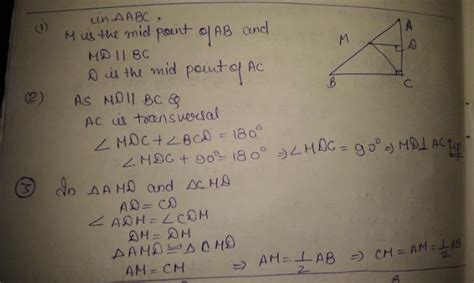 (1) in △ABC,
M is the mid point of AB and
MD || BC
D is the mid point of AC
A
M
D
B
C
(2) AS MD || BC &
AC is transversal
∠MDC + ∠BCD = 180°
∠MDC + 90° = 180° ⇒ ∠MDC = 90° ⇒ MD ⊥ AC
(3) In △AMD and △CMD
AD = CD
∠ADM = ∠CDM
DM = DM
△AMD ≅ △CMD
AM = CM ⇒ AM = 1/2 AB ⇒ CM = AM = 1/2 AB